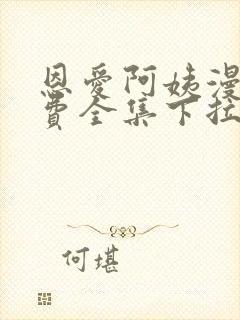 恩爱阿姨漫
费全集下拉
何堪